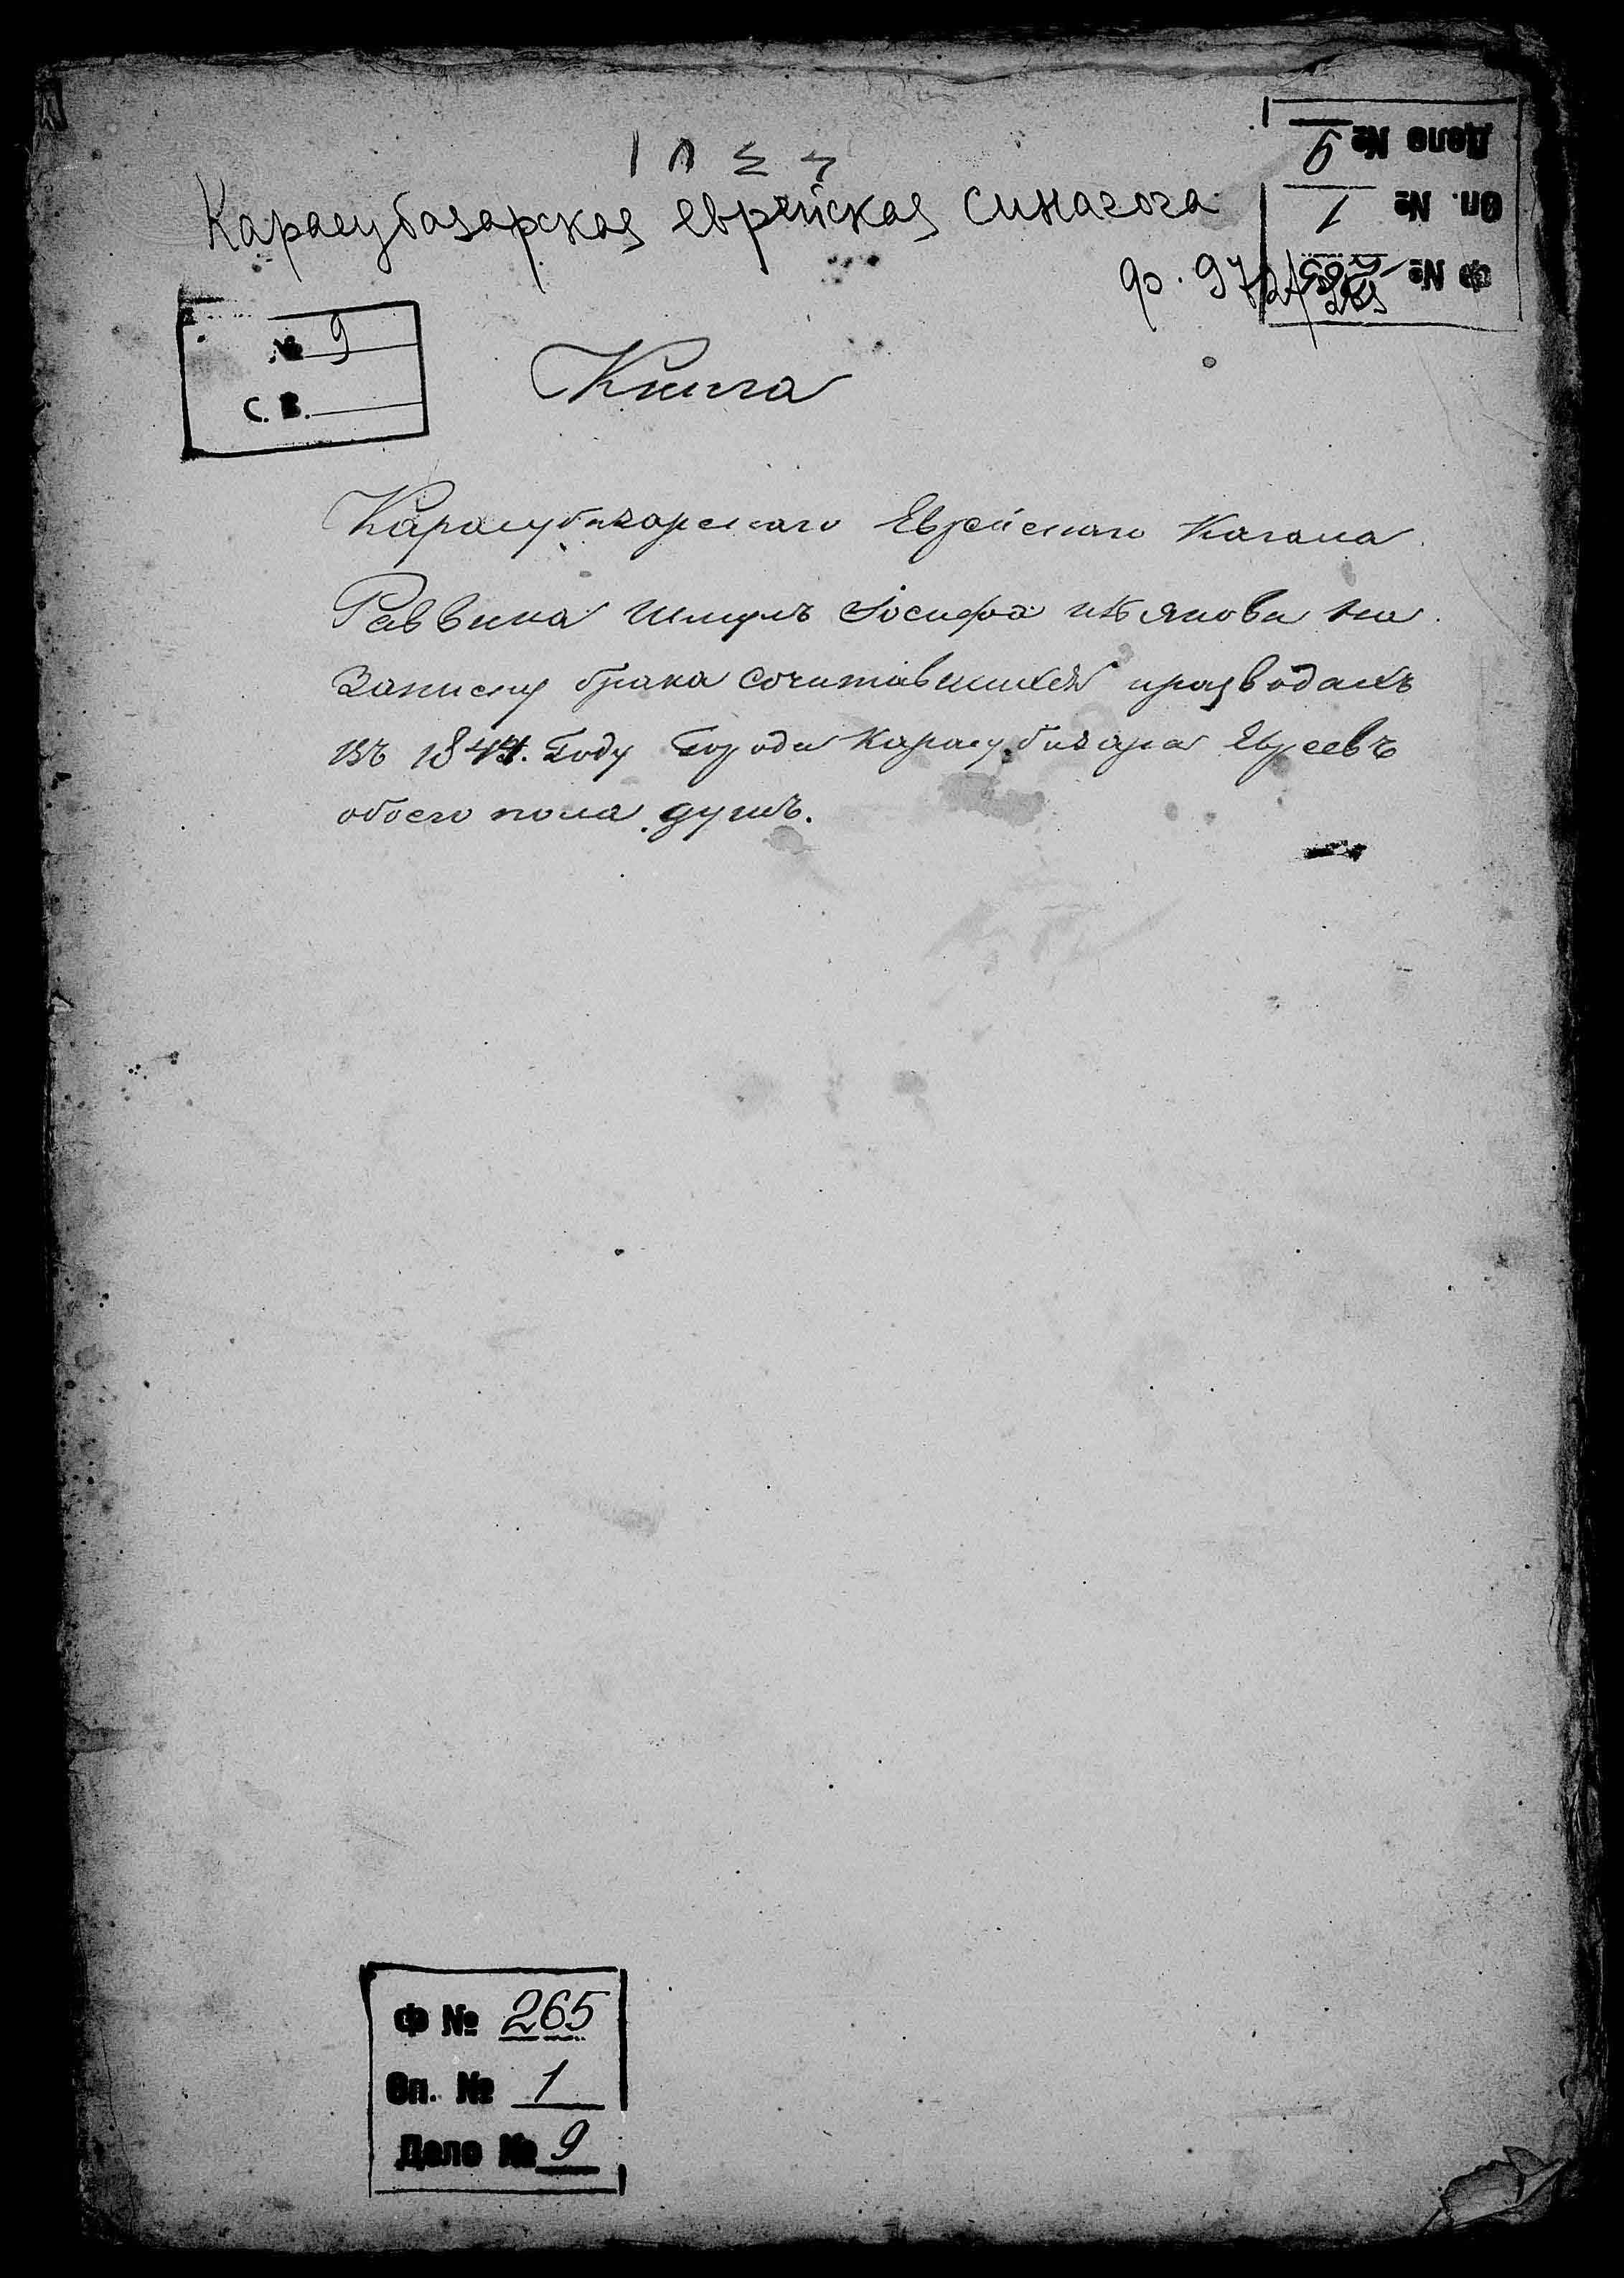 Карасубазарская еврейская синагога
Дело № 9
Оп. № 1
Ф №
ф. 972/
№ 9
С. В.
Книга
Карасубазарскаго Еврейскаго Кагала
Раввина Шмуль Іосифа на
Записку брака сочитавшихся разводахъ
въ 1844. Году Города Карасубазара Евреевъ
обоего пола душъ.
Ф № 265
Оп. № 1
Дело № 9